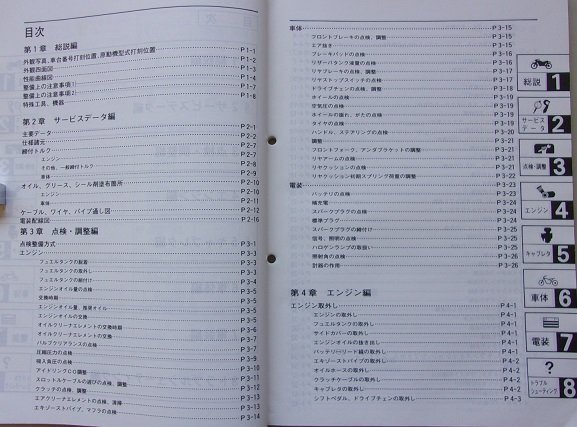 目次
第1章　総説編
外観写真、車台番号打刻位置、原動機型式打刻位置 P 1-1
外観四面図 P 1-3
性能曲線図 P 1-4
整備上の注意事項1 P 1-7
整備上の注意事項2 P 1-8
特殊工具、機器
第2章　サービスデータ編
主要データ P 2-1
仕様諸元 P 2-1
締付トルク P 2-7
エンジン P 2-7
その他、一般締付トルク P 2-8
車体 P 2-9
オイル、グリース、シール剤塗布箇所 P 2-10
エンジン P 2-10
車体 P 2-11
ケーブル、ワイヤ、パイプ通し図 P 2-12
電装配線図 P 2-16
第3章　点検・調整編
点検整備方式 P 3-1
エンジン P 3-3
フュエルタンクの脱着 P 3-3
フュエルタンクの取外し P 3-3
フュエルタンクの組付け P 3-4
エンジンオイル量の点検 P 3-5
交換時期 P 3-5
エンジンオイル量、推奨オイル P 3-5
エンジンオイルの交換 P 3-5
オイルクリーナエレメントの交換時期 P 3-6
オイルクリーナエレメントの交換 P 3-6
バルブクリアランスの点検 P 3-7
圧縮圧力の点検 P 3-9
吸入負圧の点検 P 3-10
アイドリングCO調整
スロットルケーブルの遊びの点検、調整
クラッチの点検、調整
エアクリーナエレメントの点検、清掃 P 3-13
エキゾーストパイプ、マフラの点検 P 3-14
車体 P 3-15
フロントブレーキの点検、調整 P 3-15
エア抜き P 3-15
ブレーキパッドの点検 P 3-16
リザーバタンク液量の点検 P 3-16
リヤブレーキの点検、調整 P 3-16
リヤストップスイッチの点検 P 3-17
ドライブチェンの点検、調整 P 3-18
ホイールの点検 P 3-19
空気圧の点検 P 3-19
ホイールの振れ、がたの点検 P 3-19
タイヤの点検 P 3-19
ハンドル、ステアリングの点検 P 3-20
調整 P 3-21
フロントフォーク、アンダブラケットの調整 P 3-21
リヤアームの点検 P 3-21
リヤクッションの点検 P 3-21
リヤクッション初期スプリング荷重の調整 P 3-22
電装 P 3-23
バッテリの点検 P 3-23
補充電 P 3-24
スパークプラグの点検 P 3-24
標準プラグ P 3-24
スパークプラグの締付け P 3-25
信号、照明の点検 P 3-25
ハロゲンランプの取扱い P 3-25
照射角の点検 P 3-26
計器の作用 P 3-26
第4章　エンジン編
エンジン取外し P 4-1
エンジンの取外し P 4-1
フュエルタンクの取外し P 4-1
サイドカバーの取外し P 4-1
エンジンオイルの抜き出し P 4-1
バッテリ⊖リード線の取外し P 4-1
エキゾーストパイプの取外し P 4-2
オイルホースの取外し P 4-2
クラッチケーブルの取外し P 4-2
キャブレタの取外し P 4-2
シフトペダル、ドライブチェンの取外し P 4-3
総説 1
サービスデータ 2
点検・調整 3
エンジン 4
キャブレタ 5
車体 6
電装 7
?
トラブルシューティング 8